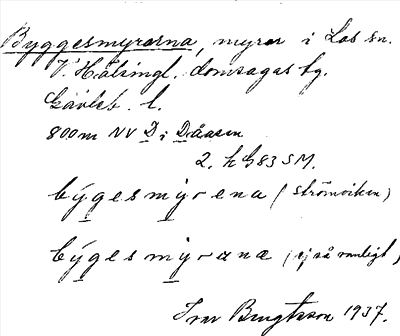 Byggesmyrorna, myror i Los sn.
V. Hälsingl. domsagas tg.
Gävleb. l.
800 m NV D i Dåasen
2. h G83 SM.
býgesmýrena (Strömviken)
býgesmýrana (ej så vanligt)
Ivar Bengtsson 1937.